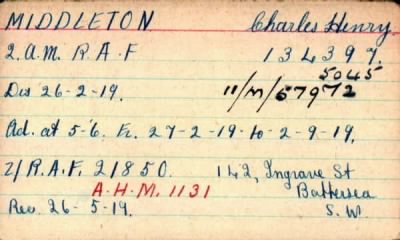 MIDDLETON Charles Henry.
2.A.M. R.A.F 134397.
5045
Dis 26-2-19. 11/M/57972
Ad. at 5-6. Fr. 27-2-19-to-2-9-19.
Z/R.A.F. 21850. 142, Ingrave St
A.H.M. 1131 Battersea
Rec. 26-5-19. S.W.